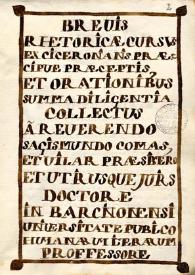 2
BREVIS
RHETORICÆ CURSUS
EX CICERONIANS PRÆ
CIPUE PRÆCEPTIS,
ET ORATIONIBUS
SUMMA DILIGENTIA
COLLECTUS
Â REVERENDO
SAGISMUNDO COMAS,
ET VILAR PRÆSBITERO
ET UTRIUSQUE JURIS
DOCTORE
IN BARCINONENSI
UNIVERSITATE PUBLICO
HUMANARUM LITERARUM
PROFFESSORE